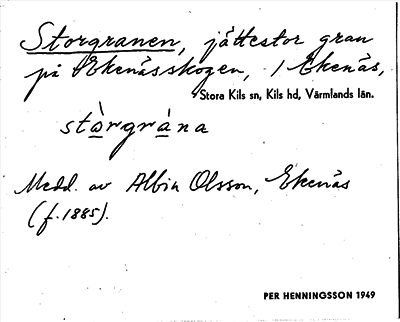 Storgranen, jättestor gran
på Ekenässkogen, / Ekenäs,
Stora Kils sn, Kils hd, Värmlands län.
stò̱rgrá̱na
Medd. av Albin Olsson, Ekenäs
(f. 1885).
PER HENNINGSSON 1949